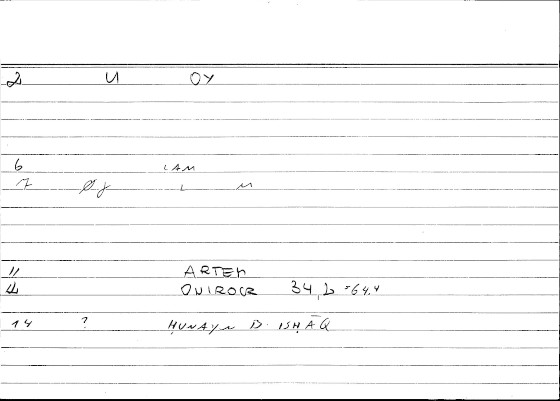 2 U OY
6 LAM
7 L M
11 ARTEM
ONIROCR 34,2 =64.4
14 ? ḤUNAYN B. ISḤĀQ